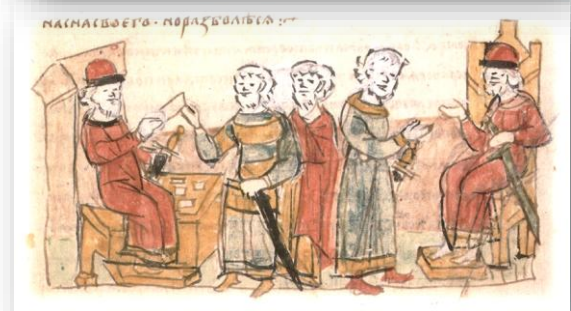 НАСНАСВОЕГО · НОРАЗБОЛѢСѦ :~